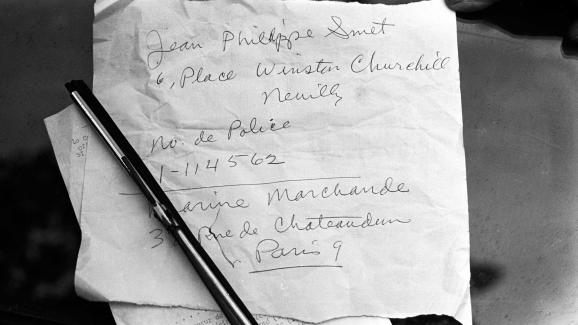 Jean Philippe Smet
6, Place Winston Churchill
Neuilly
No. de Police
1-114562
Marchande
Rue de Chateaudun
Paris 9